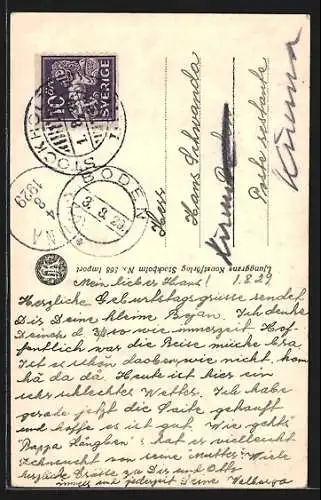 10 ÖRE
SVERIGE
STOCKHOLM
BODEN
3. 8. 29
4 8
1929
Herr
Hans Schwanda
Poste restante
Kiruna
Kiruna
Ljunggrens Konstförlag Stockholm No. 168 Import
Mein lieber Hans! 1.8.29
Herzliche Geburtstagsgrüsse sendet
Dir Deine kleine Ich denke
Deiner so wie immerzeit Hof-
fentlich war die Reise müche
Ist es schön daoben, wie nicht,
då da då. Heute ist hier ein
sehr schlechtes Wetter. Ich habe
gerade jetzt die gekauft
und hoffe es ist gut. Wie gehts
"Pappa hat er vielleicht
Sehnsucht von seine "Mutter". Viele
herzliche Grüsse zu Dir und Otto
immer und jederzeit Deine